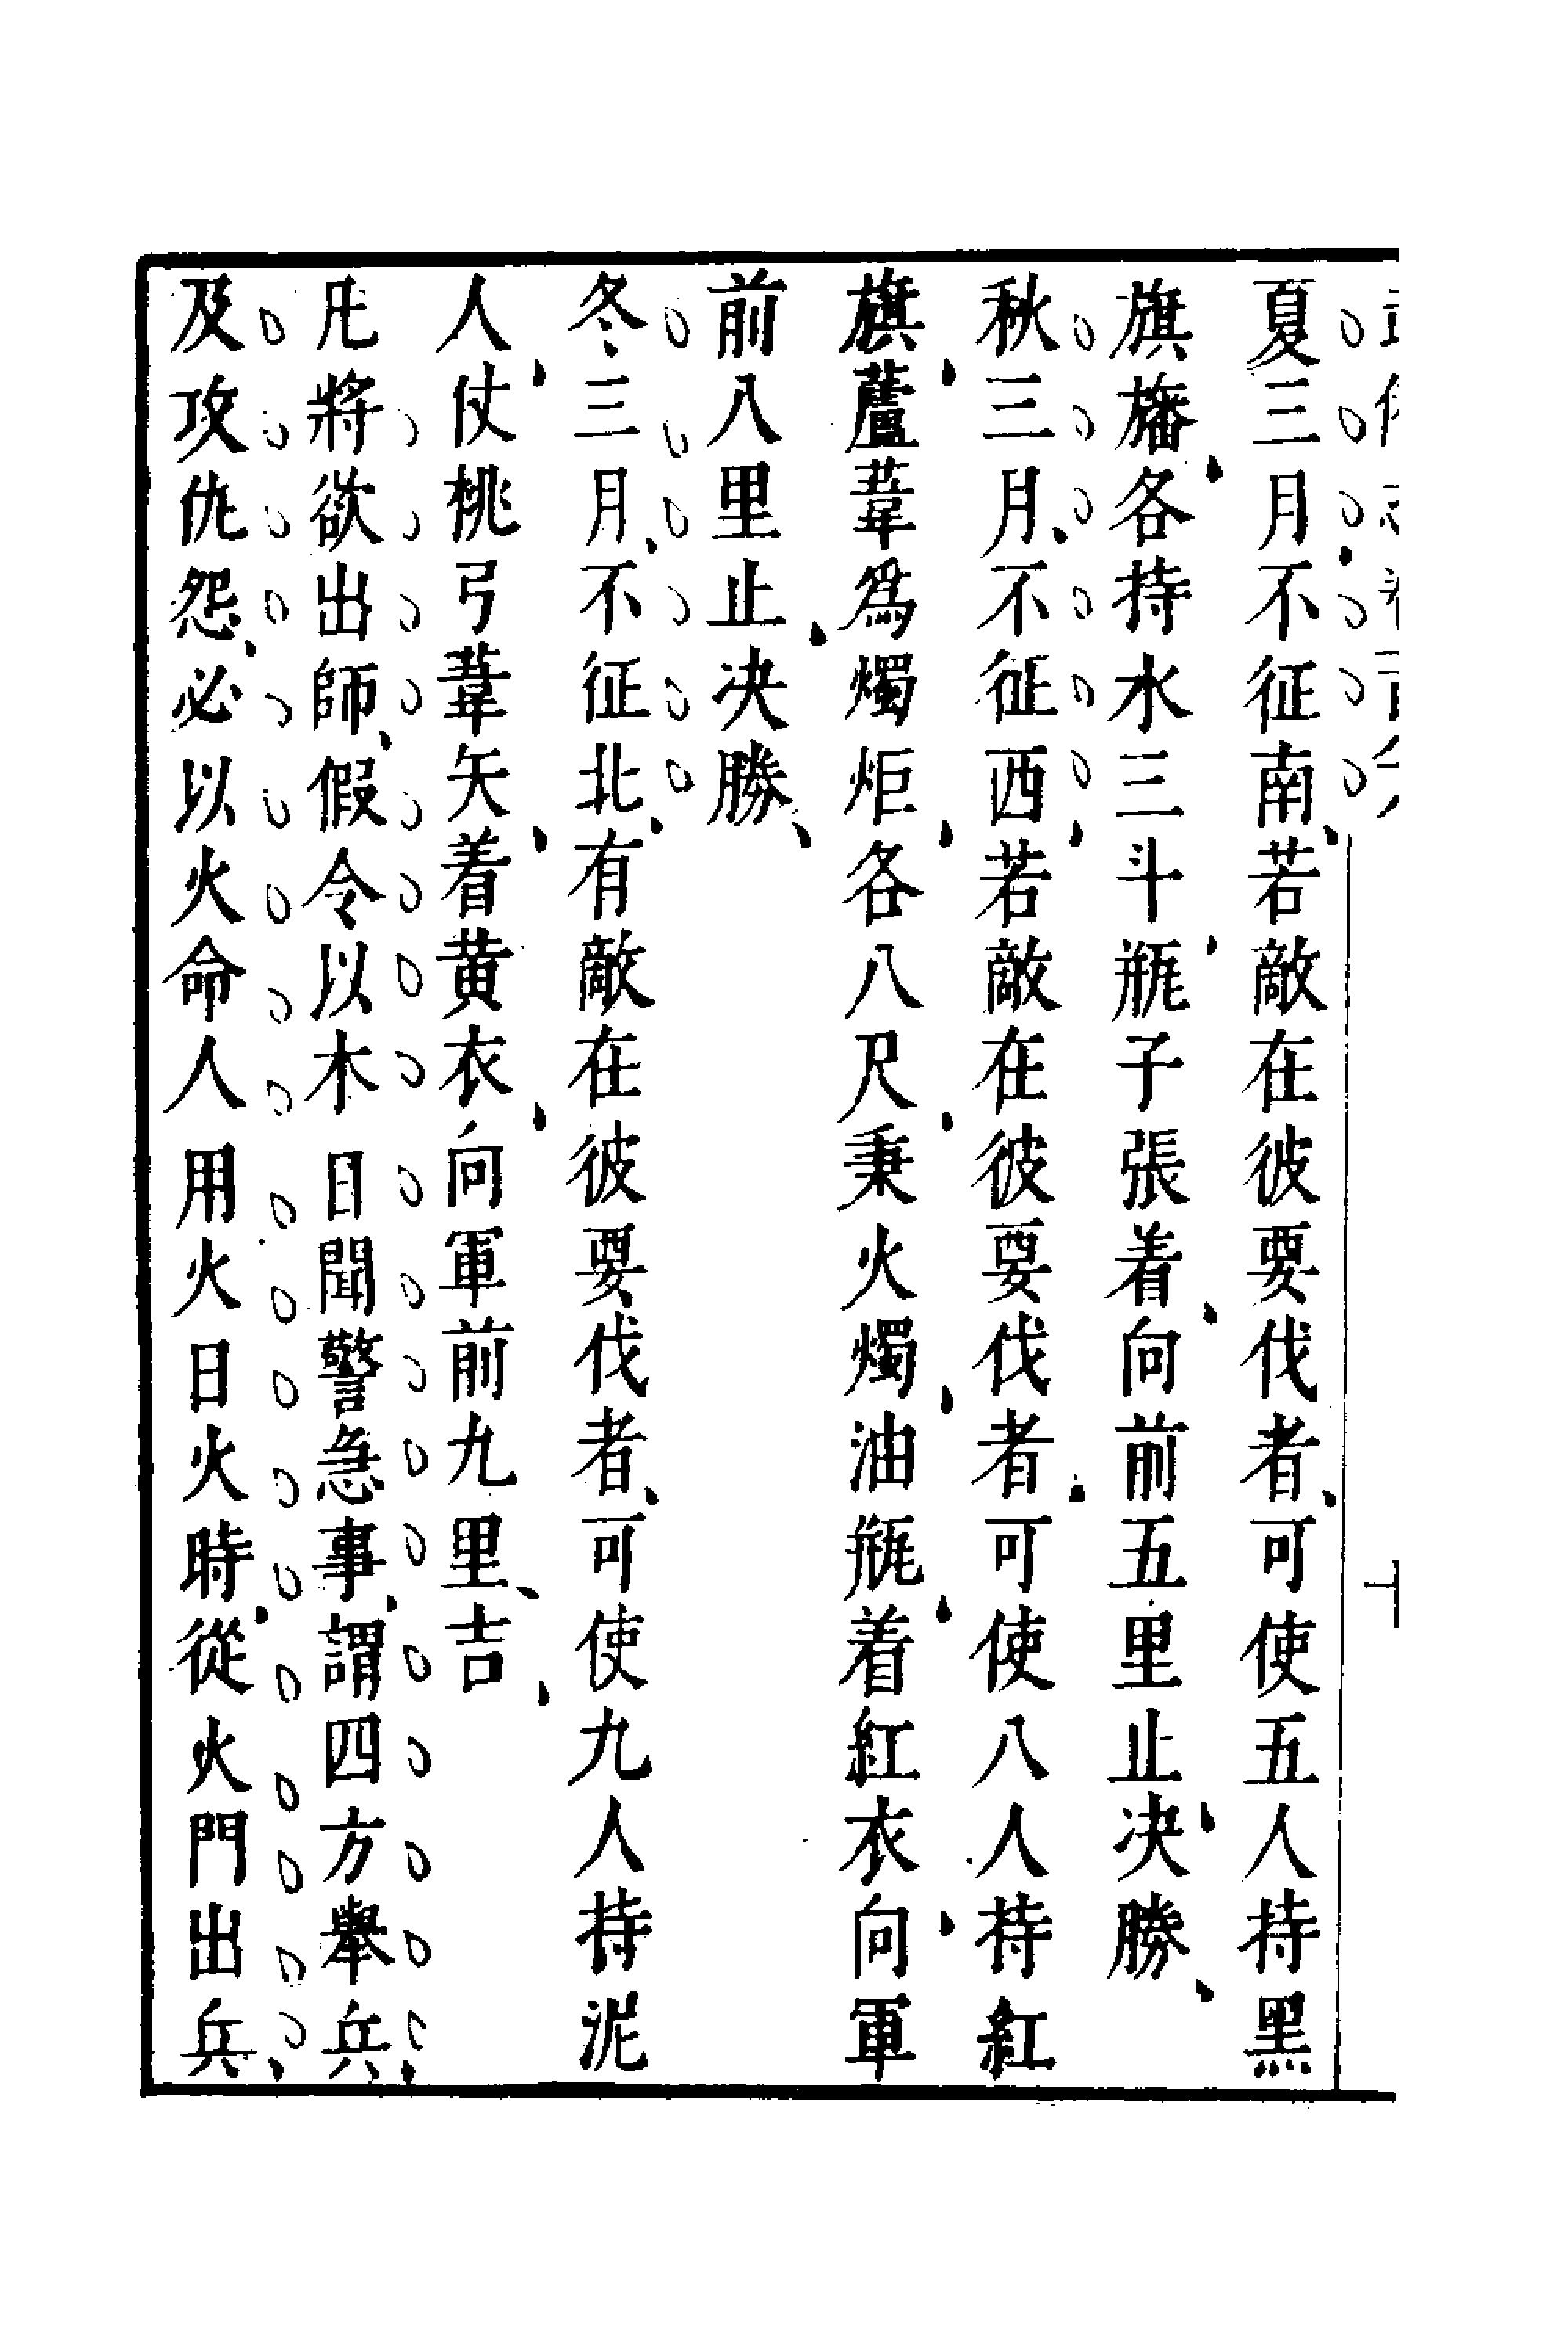 夏三月不征南若敵在彼要伐者可使五人持黑
旗旛各持水三斗瓶子張着向前五里止决勝
秋三月不征西若敵在彼要伐者可使八人持紅
旗蘆葦爲燭炬各八尺秉火燭油瓶着紅衣向軍
前八里止决勝
冬三月不征北有敵在彼要伐者可使九人持泥
人仗桃弓葦矢着黄衣向軍前九里吉
凡將欲出師假令以木日聞警急事謂四方舉兵
及攻仇怨必以火命人用火日火時從火門出兵